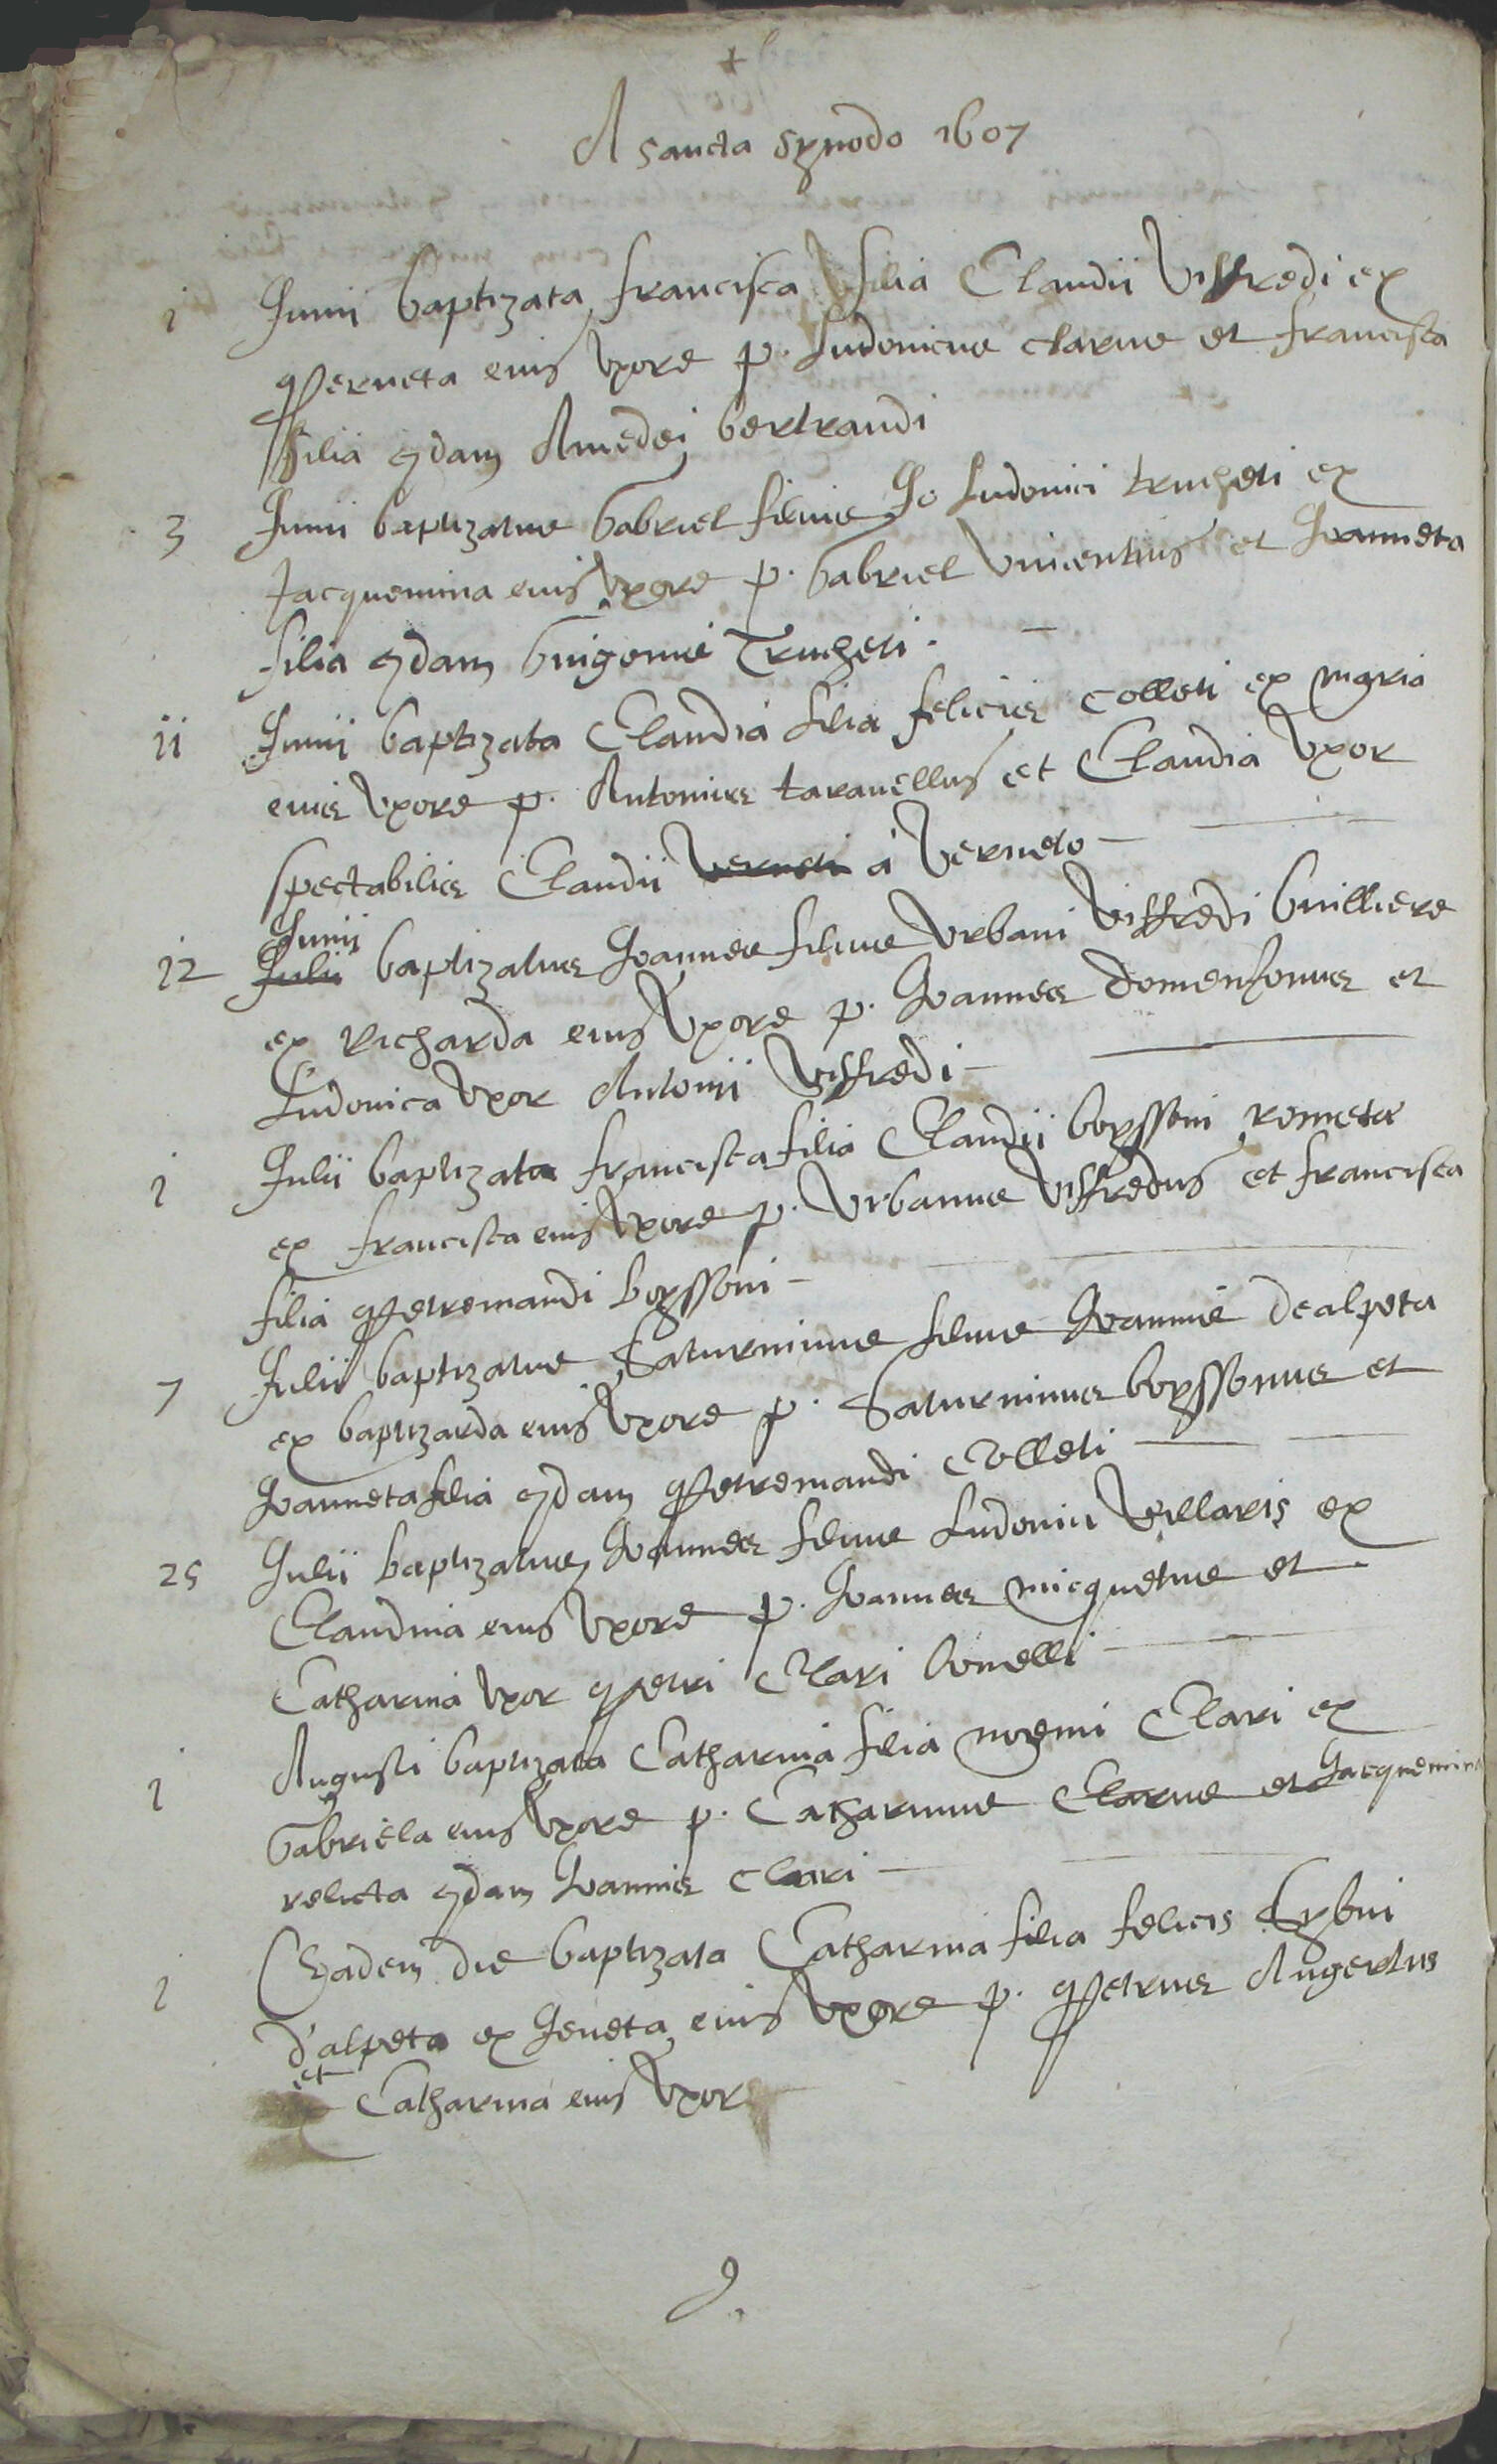 +
A sancta synodo 1607
1 Junii baptizata francisca filia Claudii Viffredi ex
perneta eius uxore p. Ludovicus clarus et francisca
filia qdam Amedei bertrandi
3 Junii baptizatus Gabriel filius Jo Ludovici trucheti ex
Jacquemina eius uxore p. Gabriel Vincentius et Joanneta
filia qdam Guigonis Trucheti.
11 Junii baptizata Claudia filia felicis Colleti ex maria
eius uxore p. Antonius taravellus et Claudia Uxor
spectabilis Claudii Verneti a Verneto
Junii
12 Julii baptizatus Joannes filius Urbani Viffredi Guilliere
ex Richarda eius Uxore p. Joannes Domensonus et
Ludovica Uxor Antonii Viffredi
1 Julii baptizata francisca filia Claudii boyssoni rometa
ex francisca eius Uxore p. Urbanus Viffredus et francisca
filia petremandi boyssoni
7 Julii baptizatus Saturninus filius Joannis dealpeta
ex baptizarda eius Uxore p. Saturninus boyssonus et
Joanneta filia qdam petremandi Colleti
25 Julii baptizatus Joannes filius Ludovici Villaris ex
Claudina eius Uxore p. Joannes micquetus et
Catharina Uxor petri Clari bonelli
1 Augusti baptizata Catharina filia noemi Clari ex
Gabriela eius Uxore p. Catharinus Clarus et Jacquemina
relicta qdam Joannis Clari
1 Eadem die baptizata Catharina filia felicis
d'alpeta ex Jeneta eius Uxore p. petrus Augertus
et
Catharina eius Uxor